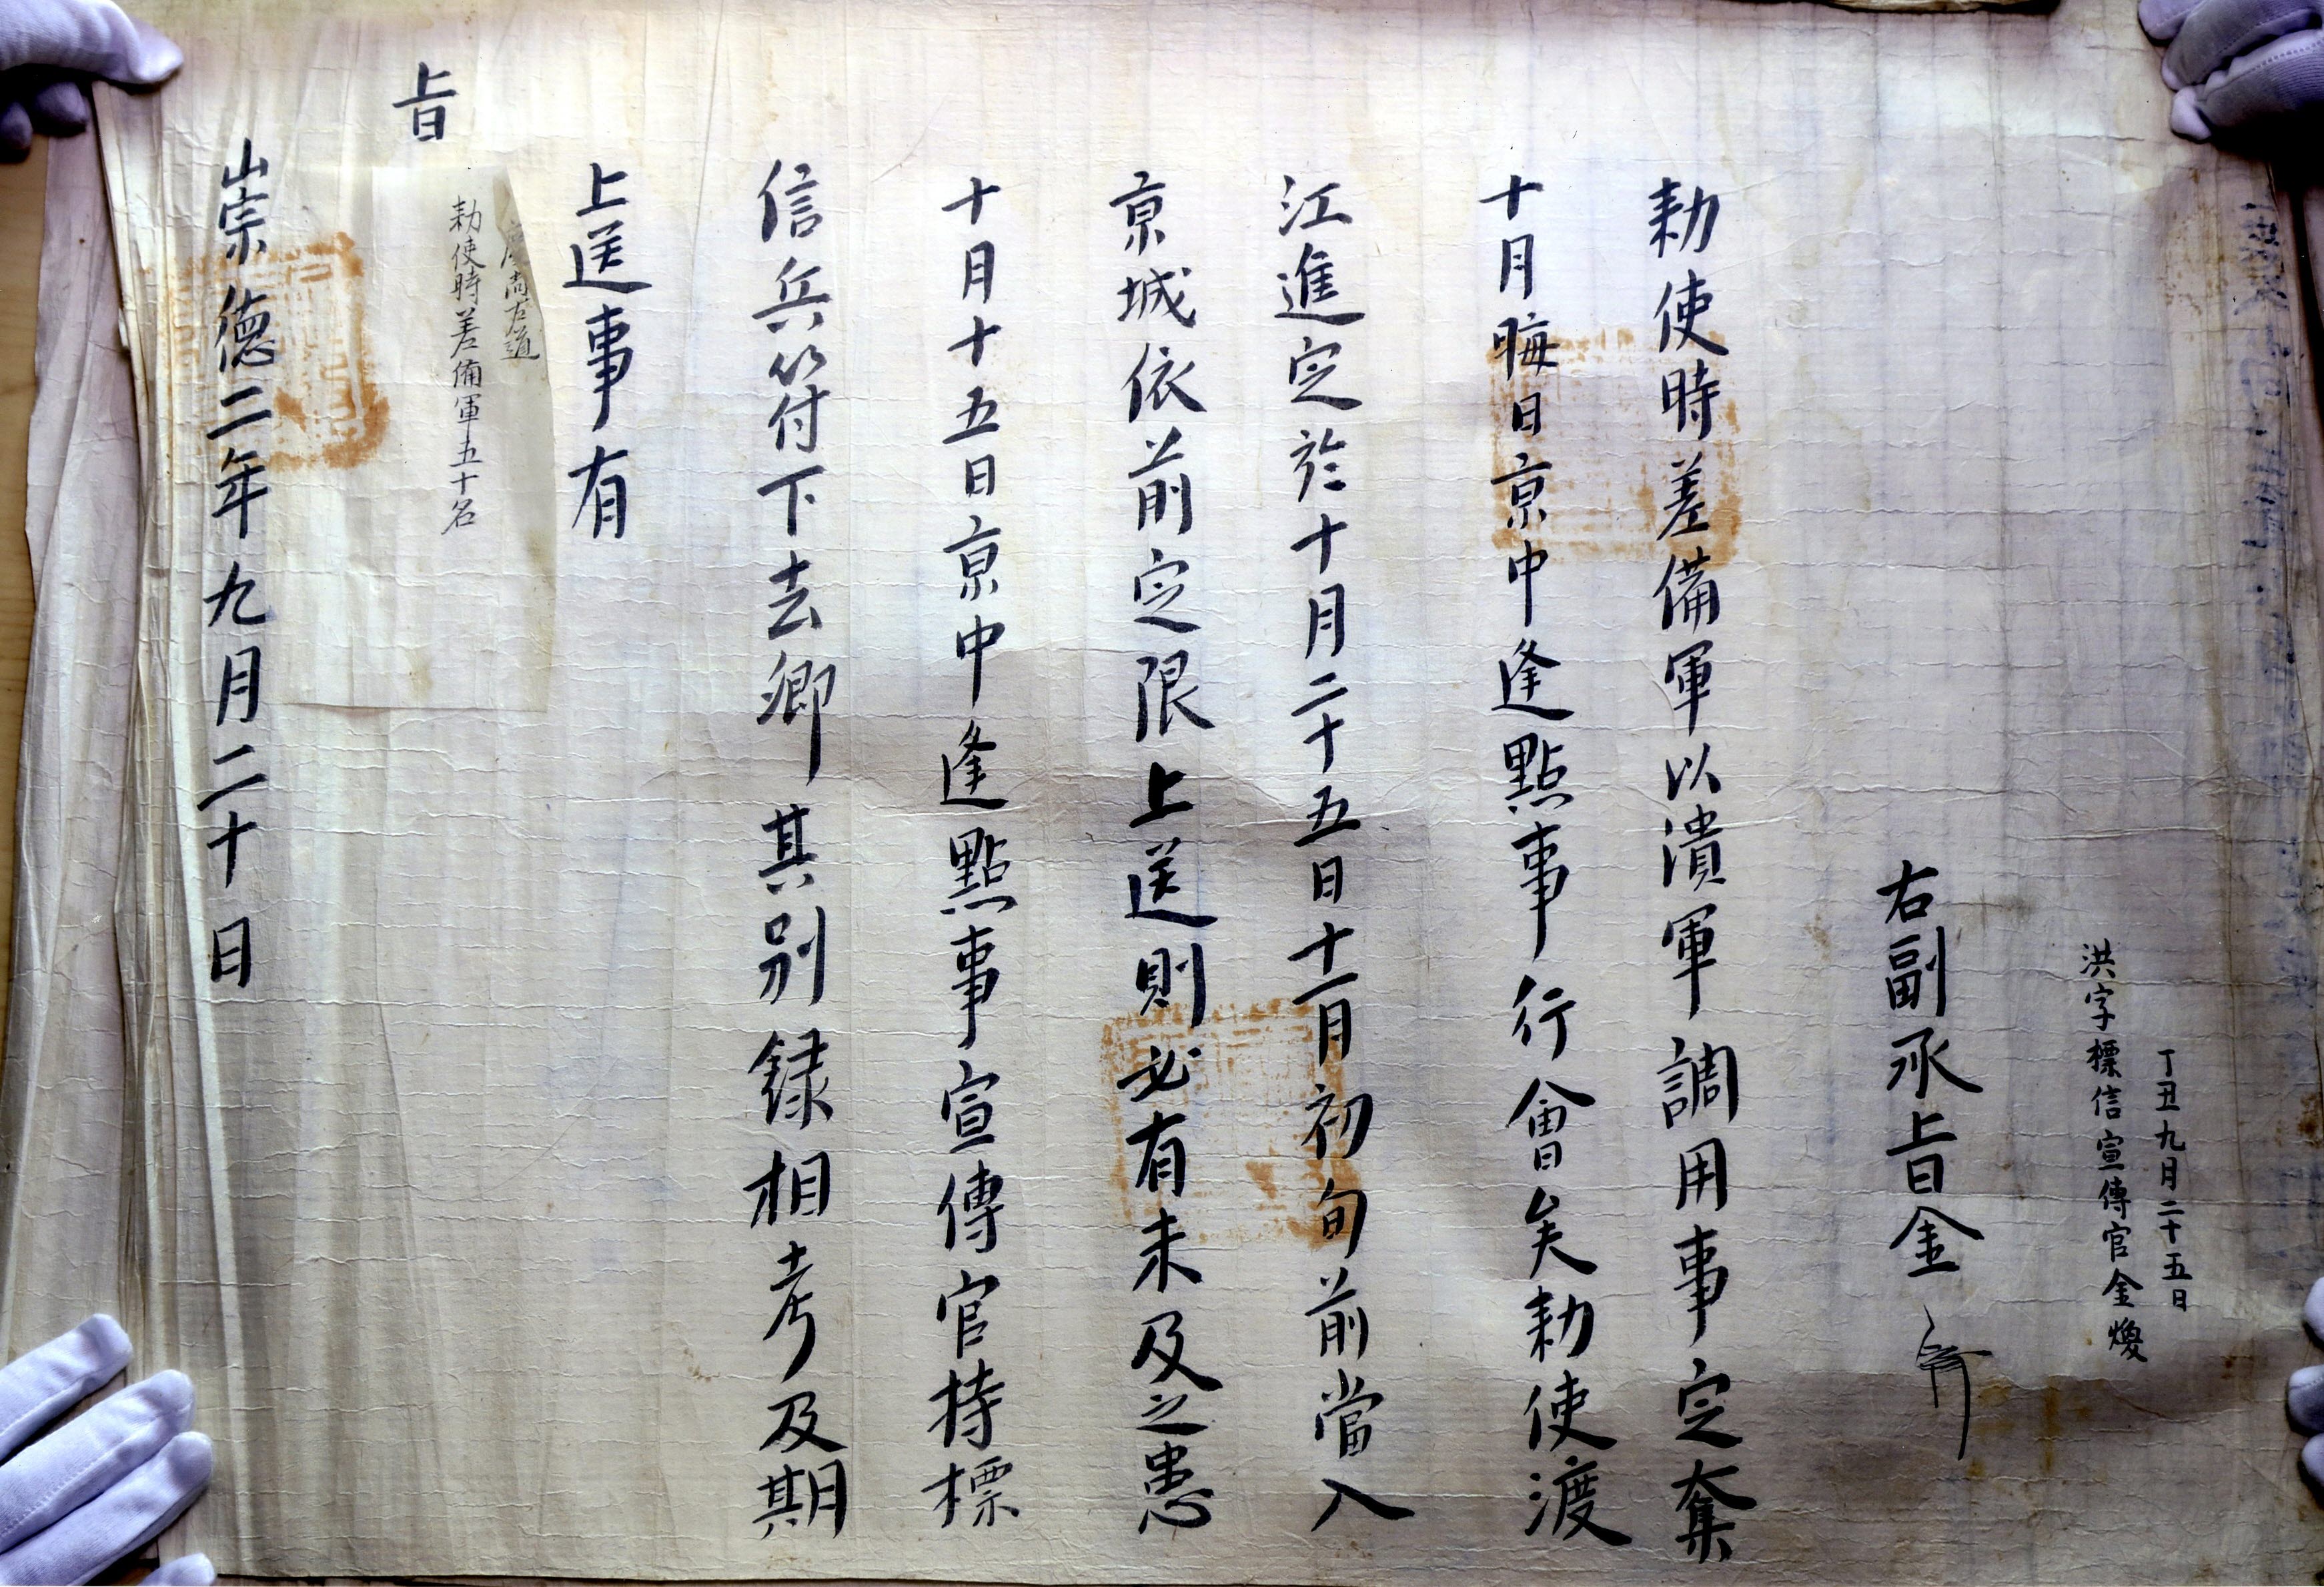 丁丑九月二十五日
洪字標信宣傳官金㷞
右副承旨金
勑使時差備軍以潰軍調用事定奪
十月晦日京中逢點事行會矣勑使渡
江進定於十月二十五日十一月初旬前當入
京城依前定限上送則必有未及之患
十月十五日京中逢點事宣傳官持標
信兵符下去卿其別録相考及期
上送事有
慶尚右道
勑使時差備軍五十名
旨
崇德二年九月二十日